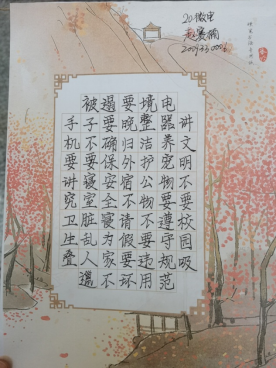 20微电
手机要讲究卫生叠
被子不要寝室脏乱人邋
遢要确保安全寝为家不
要晚归外宿不请假要环
境整洁护公物不要违用
电器养宠物要遵守规范
讲文明不要校园吸